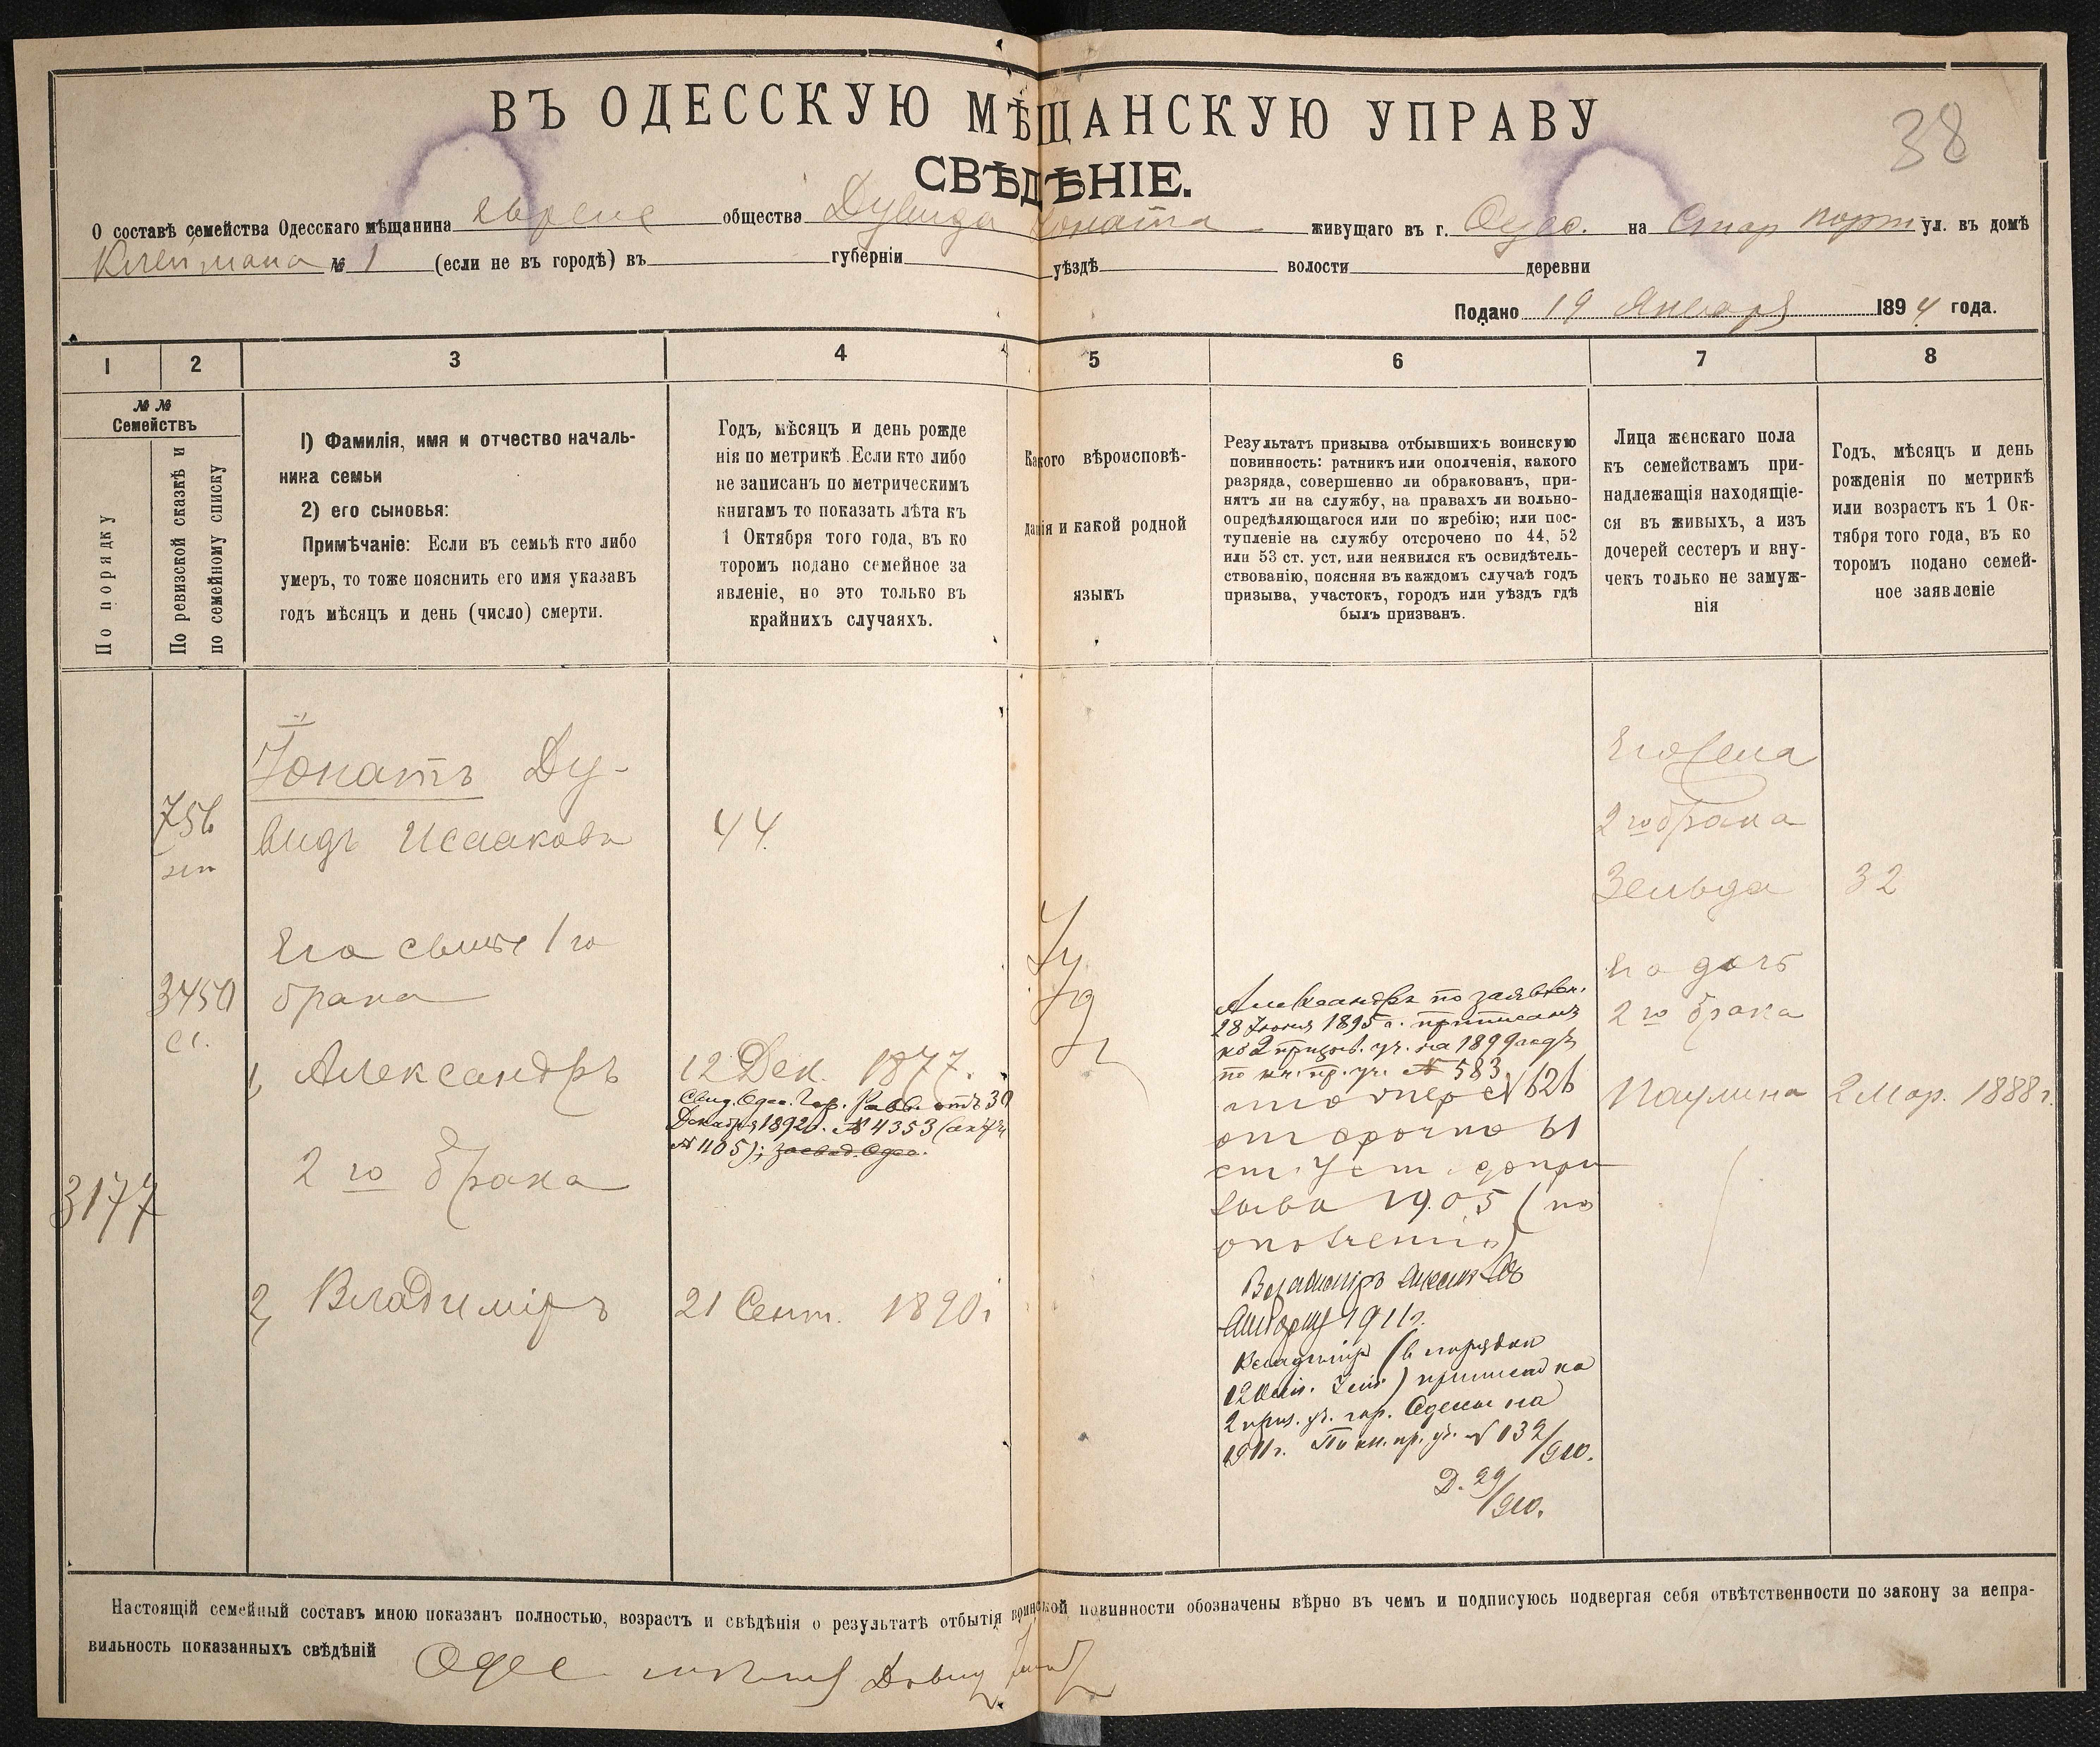 38
ВЪ ОДЕССКУЮ МѢЩАНСКУЮ УПРАВУ
СВѢДѢНІЕ.
О составѣ семейства Одесскаго мѣщанина общества Дувида Іоната живущаго въ г. Одес. на Стар порт ул. въ домѣ
Клеймана № 1 (если не въ городѣ) въ губерніи уѣздѣ волости деревни
Подано 19 Января 1894 года.
1 2 3 4 5 6 7 8
№ №
Семействъ
По порядку
По ревизской сказкѣ и
по семейному списку
1) Фамилія, имя и отчество началь-
ника семьи
2) его сыновья:
Примѣчаніе: Если въ семьѣ кто либо
умеръ, то тоже пояснить его имя указавъ
годъ мѣсяцъ и день (число) смерти.
Годъ, мѣсяцъ и день рожде
нія по метрикѣ. Если кто либо
не записанъ по метрическимъ
книгамъ то показать лѣта къ
1 Октября того года, въ ко
торомъ подано семейное за
явленіе, но это только въ
крайнихъ случаяхъ.
Какого вѣроисповѣ-
данія и какой родной
языкъ
Результатъ призыва отбывшихъ воинскую
повинность: ратникъ или ополченія, какого
разряда, совершенно ли обракованъ, при-
нятъ ли на службу, на правахъ ли вольно-
опредѣляющагося или по жребію; или пос-
тупленіе на службу отсрочено по 44, 52
или 53 ст. уст, или неявился къ освидѣтель-
ствованію, поясняя въ каждомъ случаѣ годъ
призыва, участокъ, городъ или уѣздъ гдѣ
былъ призванъ.
Лица женскаго пола
къ семействамъ при-
надлежащія находящіе-
ся въ живыхъ, а изъ
дочерей сестеръ и вну-
чекъ только не замуж-
нія
Годъ, мѣсяцъ и день
рожденія по метрикѣ
или возрастъ къ 1 Ок-
тября того года, въ ко
торомъ подано семей-
ное заявленіе
Іонатъ Ду-
видъ Исааковъ
44
756
3450
Его сынъ 1 го
брака
1, Александръ
12 Дек. 1877.
Свид. Одес. Гор. Равв. отъ 30
Декабря 1892 г. № 4353 (акт
№ 1105); засвид. Одес.
2 го брака
3177
2, Владиміръ
21 Сент. 1890 г
Іуд
Александръ по заявлен.
28 Іюня 1895 г. приписанъ
ко 2 призыв. уч. на 1899 годъ
по кн. пр. уч. № 583
№ 626
отсрочка 61
ст. Уст. до при
зыва 1905 (по
Владиміръ
1911 г.
Владиміръ (в порядкѣ
) приписан ко
2 приз. уч. гор. Одессы на
1911 г. По кн. пр. уч. № 132/910.
Д. 29/910.
Его жена
2 го брака
Зельда
32
Его дочь
2 го брака
Паулина
2 Мар. 1888 г.
Настоящій семейный составъ мною показанъ полностью, возрастъ и свѣдѣнія о результатѣ отбытія воинской повинности обозначены вѣрно въ чемъ и подписуюсь подвергая себя отвѣтственности по закону за непра-
вильность показанныхъ свѣдѣній
Одес Довид